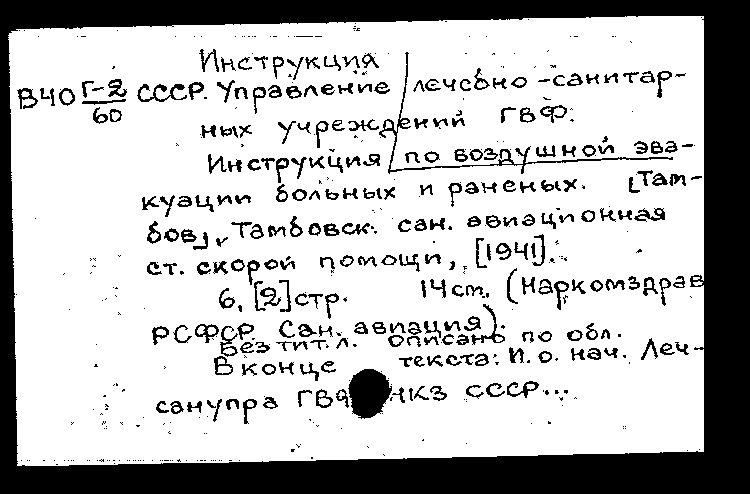 Инструкция
В40 Г-2/60 СССР. Управление лечебно-санитар-
ных учреждений ГВФ.
Инструкция по воздушной эва-
куации больных и раненых. [Там-
бов], Тамбовск. сан. авиационная
ст. скорой помощи, [1941].
6, [2] стр. 14 см. (Наркомздрав
РСФСР Сан. авиация).
Без тит. л. описано по обл.
В конце текста: И. о. нач. Леч-
санупра ГВФ НКЗ СССР...